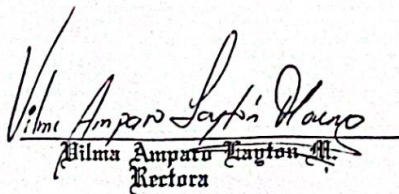 Vilma Amparo Layton Moreno
Vilma Amparo Layton M.
Rectora